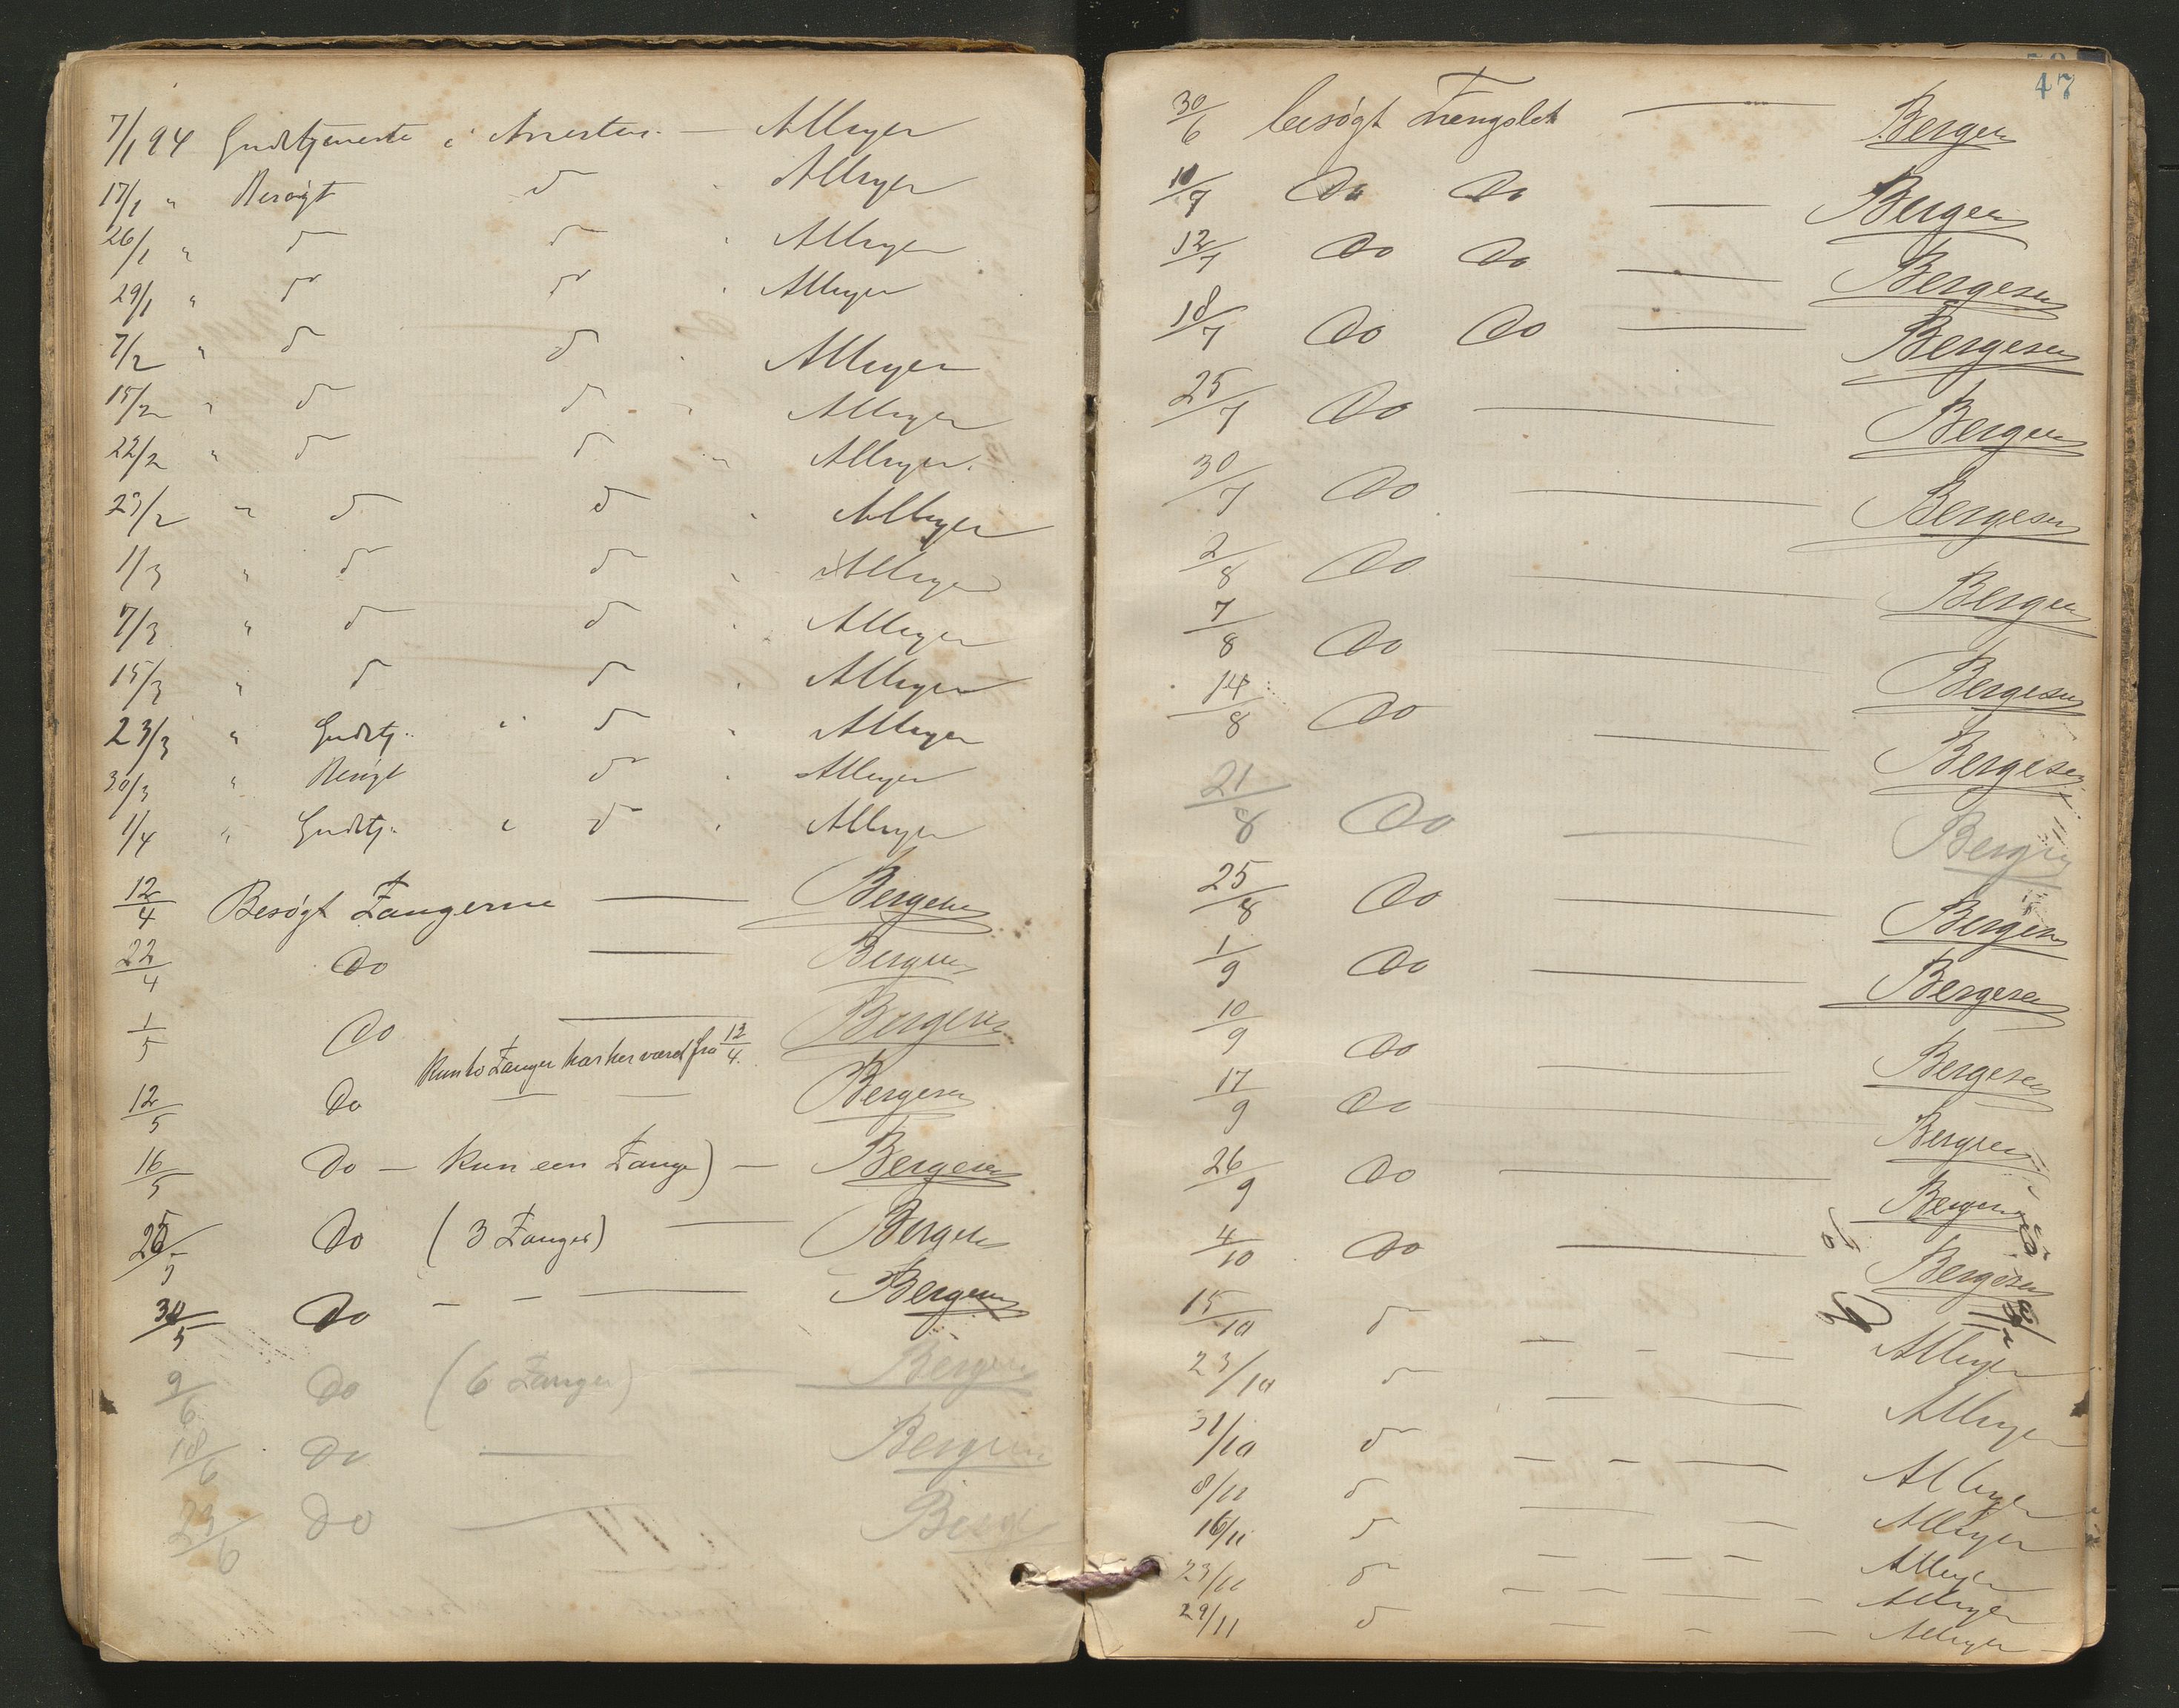 7/1 94 Gudstjeneste i Arresten. — AMeyer
17/1 " Besøgt do . AMeyer
26/1 " do do " AMeyer
29/1 " do do " AMeyer
7/2 " do do . AMeyer
15/2 " do do " AMeyer
22/2 " do do " AMeyer.
23/2 " do do " AMeyer
1/3 " do do " AMeyer
7/3 " do do " AMeyer
15/3 " do do " AMeyer
23/3 " Gudstj. i do " AMeyer
30/3 " Besøgt do " AMeyer
1/4 " Gudstj. i do " AMeyer
12/4 Besøgt Fangerne — Bergesen
22/4 Do — Bergesen
1/5 Do — Bergesen
Kun to Fanger har her været fra 12/4.
12/5 Do — — Bergesen
16/5 Do — Kun een Fange) — Bergesen
25/5 Do (3 Fanger) — Bergesen
30/5 Do — — — Bergesen
9/6 Do (6 Fanger) — Bergesen
18/6 Do — Bergesen
23/6 Do — Berge
47
30/6 besøgt Fængslet — Bergesen
10/7 Do Do — Bergesen
12/7 Do Do — Bergesen
18/7 Do Do — Bergesen
25/7 Do — Bergesen
30/7 Do — Bergesen
2/8 Do — Bergesen
7/8 Do — Bergesen
14/8 Do — Bergesen
21/8 Do — Bergesen
25/8 Do — Bergesen
1/9 Do — Bergesen
10/9 Do — Bergesen
17/9 Do — Bergesen
26/9 Do — Bergesen
4/10 Do — Bergesen
15/10 do — — — AMeyer
23/10 do — — — AMeyer
31/10 do — — — AMeyer
8/11 do — — — AMeyer
16/11 do — — — AMeyer
23/11 do — — — AMeyer
29/11 do — — — AMeyer